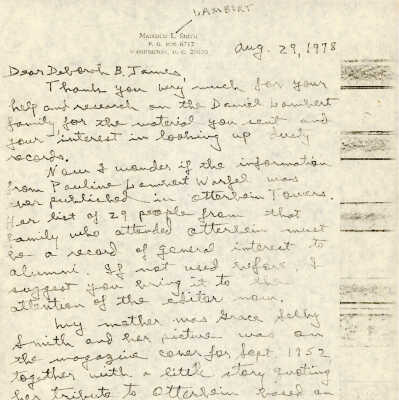 LAMBERT
Marjorie L. Smith
P. O. Box 6717
Washington, D. C. 20020
Aug. 29, 1978
Dear Deborah B. James,
Thank you very much for your
help and research on the Daniel Lambert
family for the material you sent and
your interest in looking up dusty
records.
Now I wonder if the information
from Pauline Lambert was
ever published in Otterbein Towers.
Her list of 29 people from that
family who attended Otterbein must
be a record of general interest to
alumni. If not used before, I
suggest you bring it to the
attention of the editor now.
My mother was Grace Selby
Smith and her picture was on
the magazine cover for Sept 1952
together with a little story quoting
her tribute to Otterbein based on